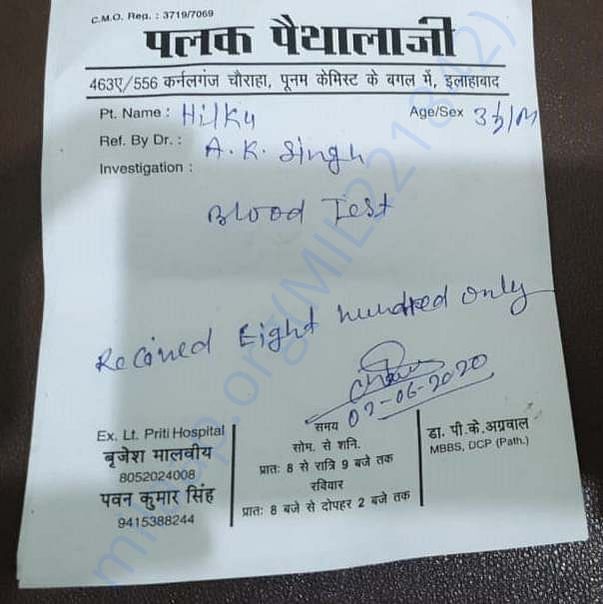 C.M.O. Reg. : 3719/7069
पलक पैथालाजी
463ए/556 कर्नलगंज चौराहा, पूनम केमिस्ट के बगल में, इलाहाबाद
Pt. Name : Hilku Age/Sex 3½/M
Ref. By Dr. : A.K. Singh
Investigation :
Blood Test
Recived Eight hundred only
02-06-2020
Ex. Lt. Priti Hospital
बृजेश मालवीय
8052024008
पवन कुमार सिंह
9415388244
समय
सोम. से शनि.
प्रातः 8 से रात्रि 9 बजे तक
रविवार
प्रातः 8 बजे से दोपहर 2 बजे तक
डा. पी.के. अग्रवाल
MBBS, DCP (Path.)